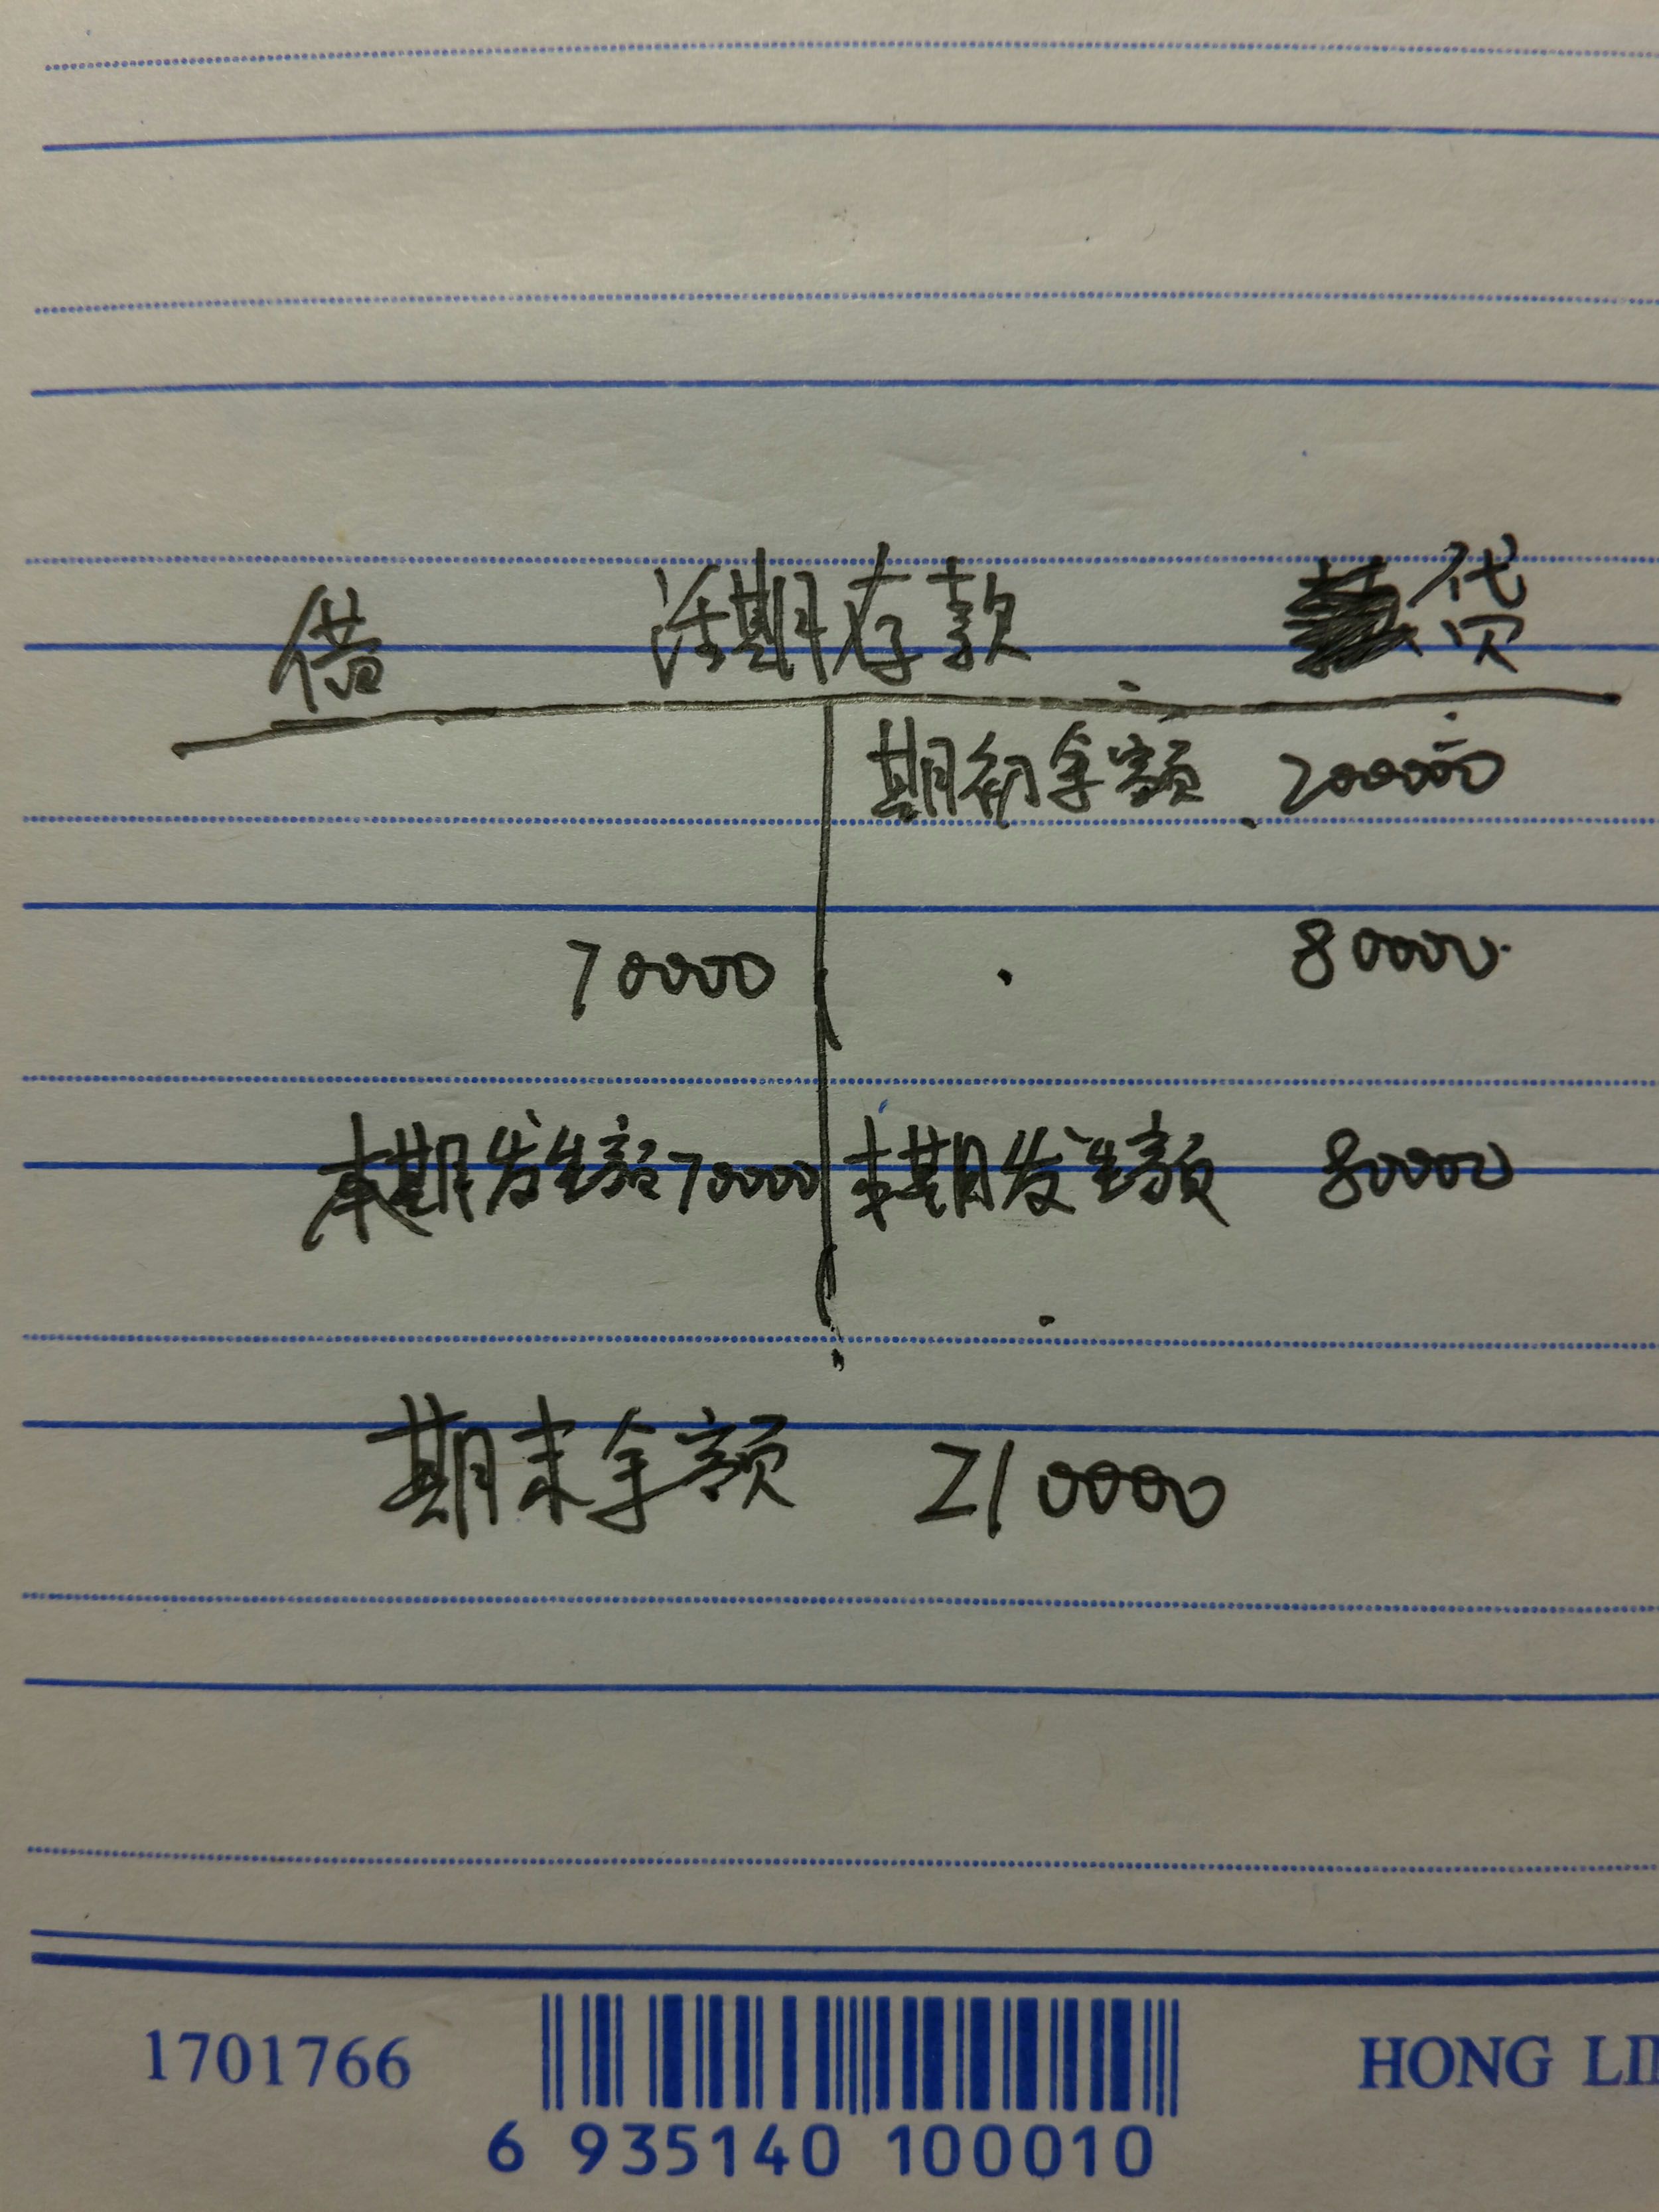 借 活期存款 贷
期初余额 200000
70000 80000
本期发生额70000 本期发生额 80000
期末余额 210000
1701766
HONG LI
6 935140 100010